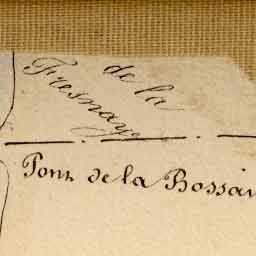 de la
Fresnaye
Pont de la Bossar